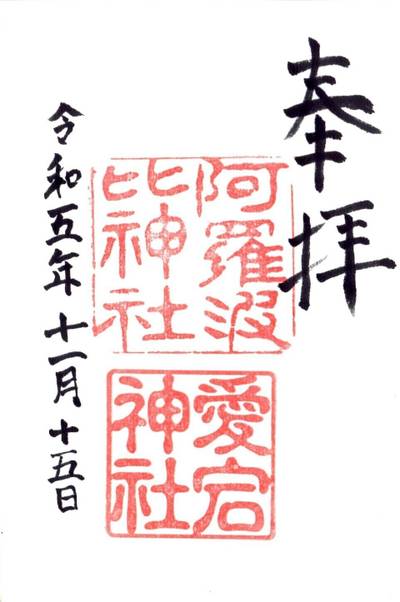 奉拝
阿羅波
比神社
愛宕
神社
令和五年十一月十五日